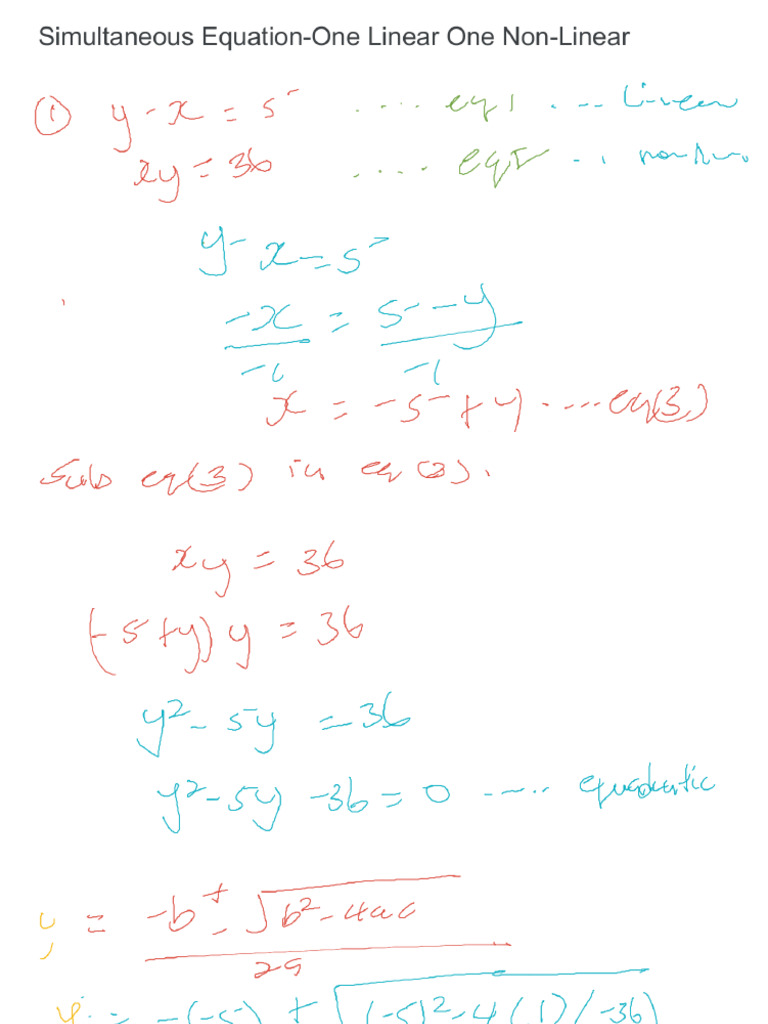 Simultaneous Equation-One Linear One Non-Linear
① y-x = 5 .... eq1 ... Linear
xy = 36 .... eqII ..
y-x=5
-x = 5-y
-1 -1
x = -5+y ....eq(3)
Sub eq(3) in eq(2).
xy = 36
(-5+y)y = 36
y²-5y =36
y²-5y-36=0 ..... equadratic
y = -b±√b²-4ac
2a
y = -(-5) ± √(-5)²-4(1)(-36)